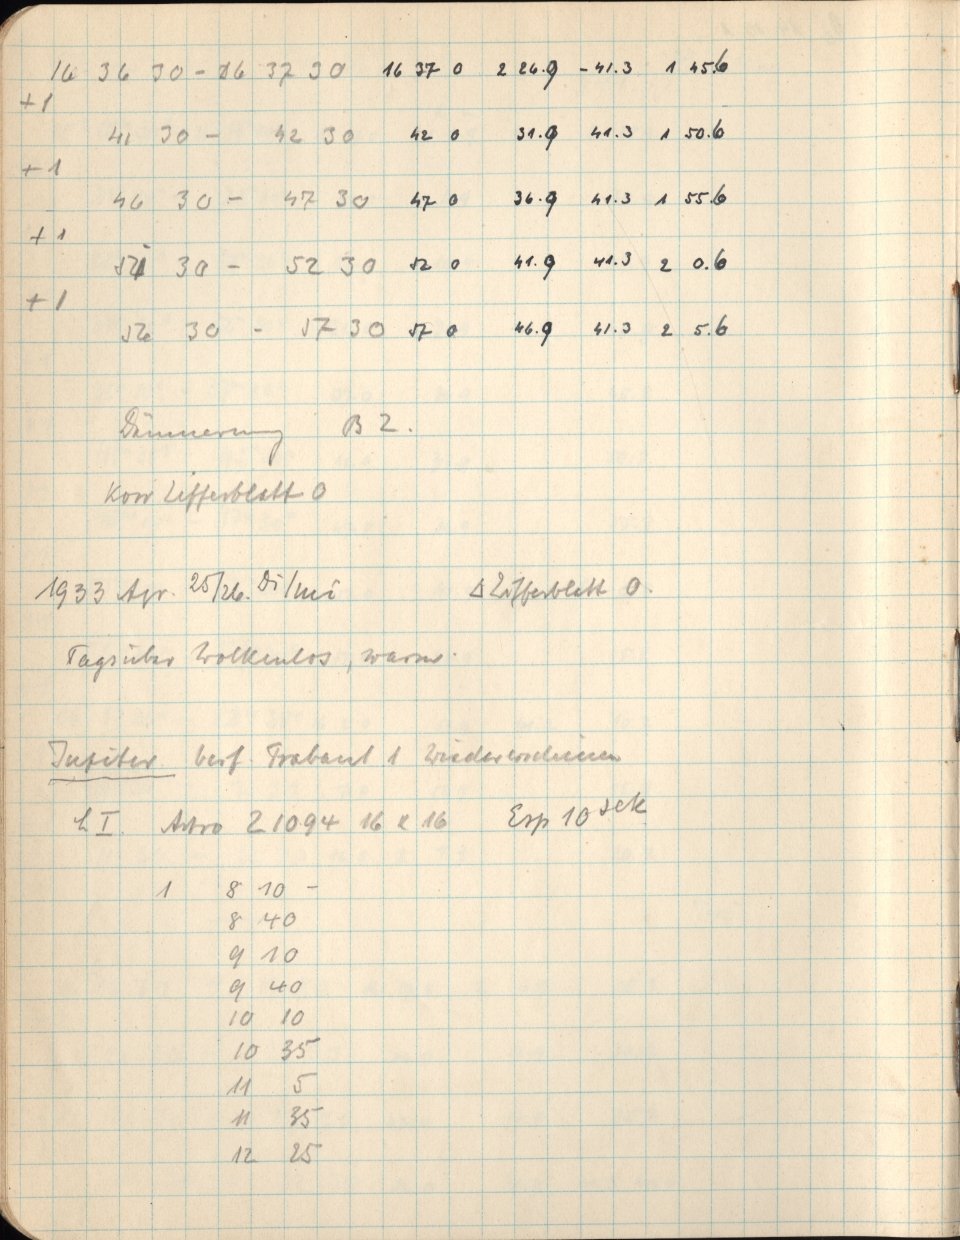 16 36 30 - 16 37 30 16 37 0 2 26.9 - 41.3 1 45.6
+1
41 30 - 42 30 42 0 31.9 41.3 1 50.6
+1
46 30 - 47 30 47 0 36.9 41.3 1 55.6
+1
51 30 - 52 30 52 0 41.9 41.3 2 0.6
+1
56 30 - 57 30 57 0 46.9 41.3 2 5.6
Dämmerung B 2.
Korr Zifferblatt 0
1933 Apr. 25/26. Di/Mi Δ Zifferblatt 0.
Tagsüber Wolkenlos, warm.
Jupiter Trabant 1 Wiedererscheinen
L I. Astro Z 1094 16 x 16 Exp 10 sek
1 8 10 -
8 40
9 10
9 40
10 10
10 35
11 5
11 35
12 25